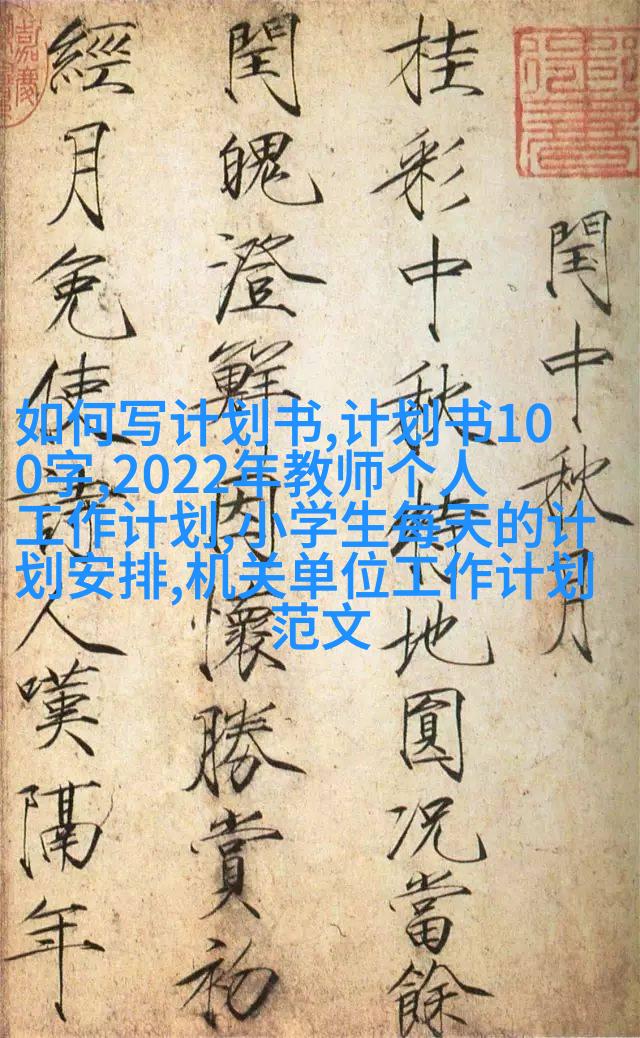 閏中秋月
桂彩中秋特地圓況當餘
閏魄澄鮮因懷勝賞初
經月免使詩人嘆隔年
如何写计划书,计划书10
0字,2022年教师个人
工作计划,小学生每天的计
划安排,机关单位工作计划
范文